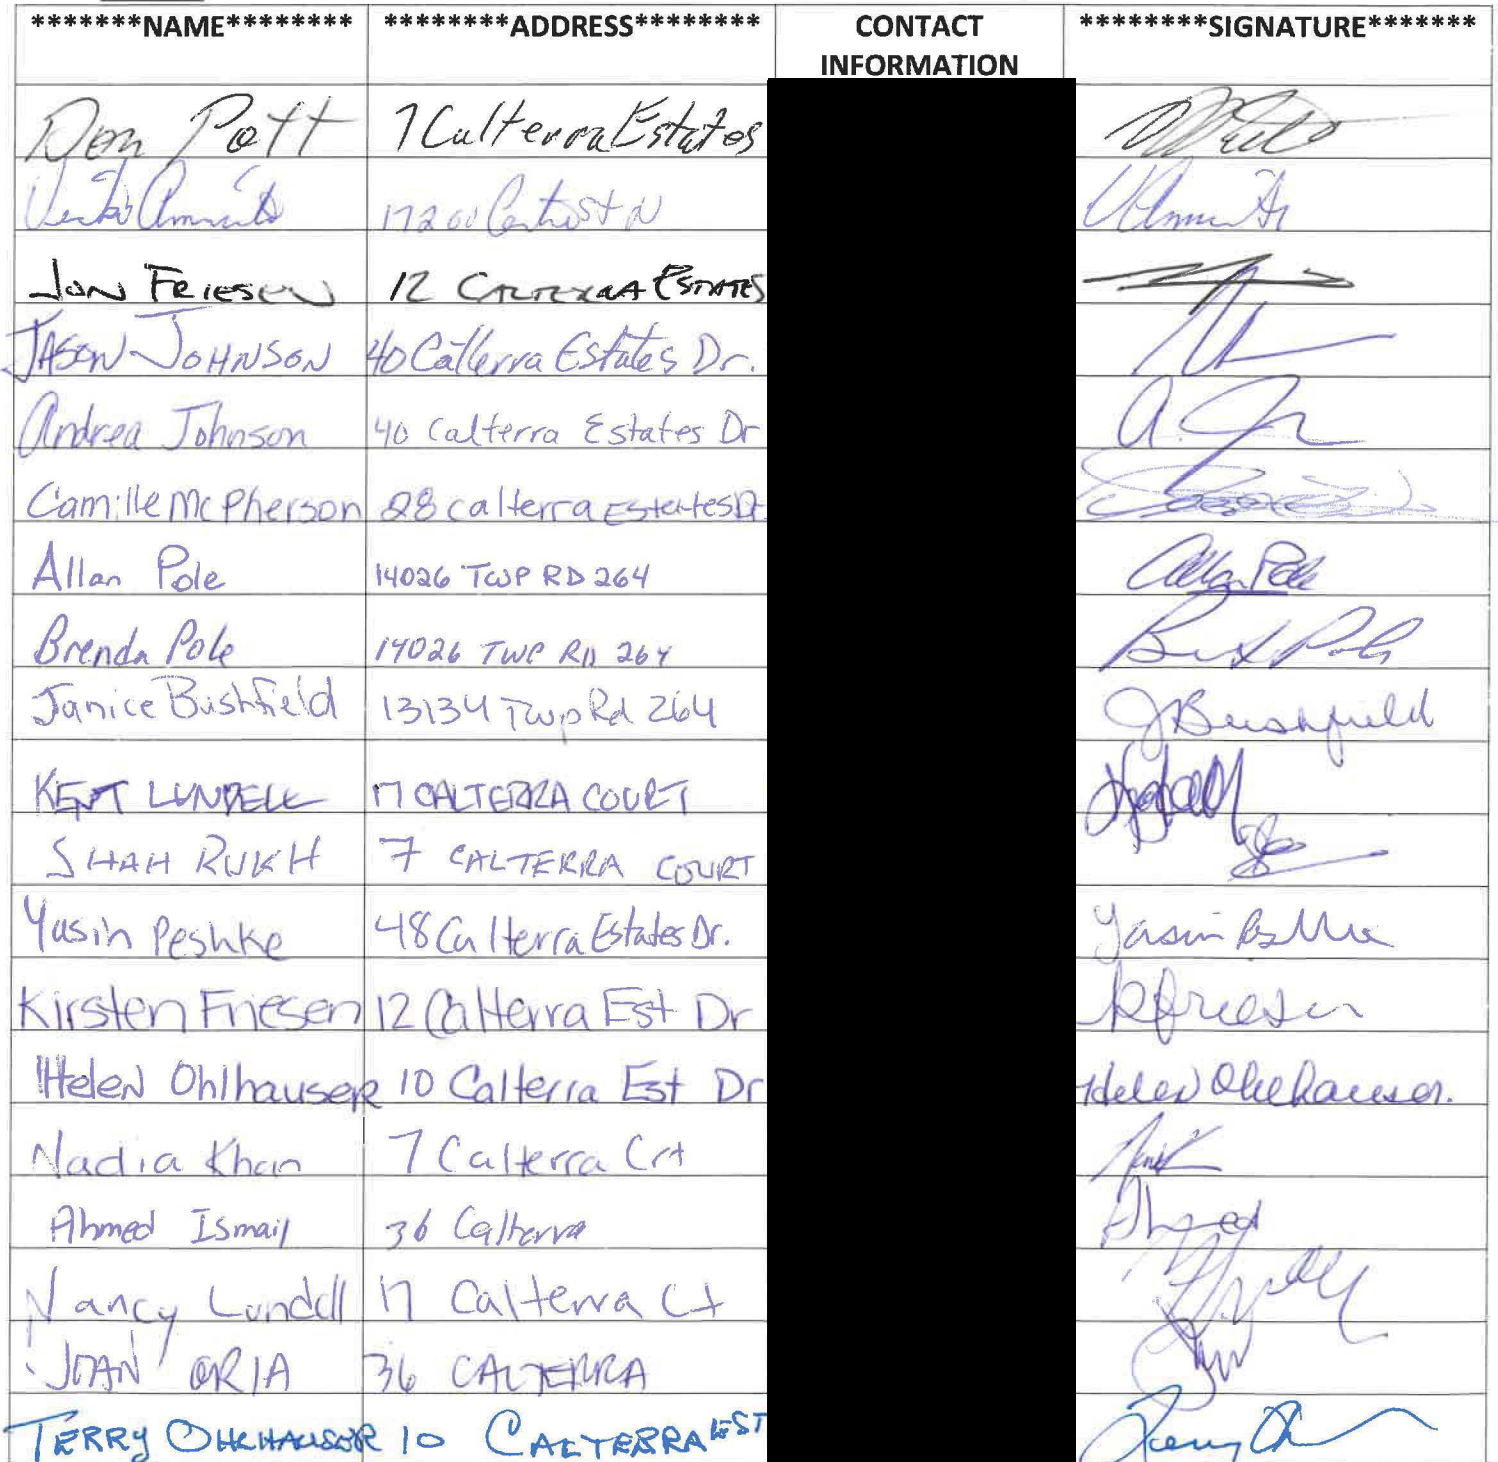 *******NAME******** ********ADDRESS******** CONTACT INFORMATION ********SIGNATURE*******
Don Pott 7 Calterra Estates
17200 N
JON FRIESEN 12 CALTERRA ESTATES
JASON JOHNSON 40 Calterra Estates Dr.
Andrea Johnson 40 Calterra Estates Dr A. J
Camille McPherson 28 calterra Estates Dr
Allan Pole 14026 TWP RD 264 Allan Pole
Brenda Pole 14026 TWP RD 264
Janice Bushfield 13134 Twp Rd 264 J Bushfield
KENT LUNDELL 17 CALTERRA COURT
SHAH RUKH 7 CALTERRA COURT
Yasin Peshke 48 Calterra Estates Dr. Yasin Peshke
Kirsten Friesen 12 Calterra Est Dr K Friesen
Helen Ohlhauser 10 Calterra Est Dr Helen Ohlhauser.
Nadia Khan 7 Calterra Crt
Ahmed Ismail 36 Calterra Ahmed
Nancy Lundell 17 Calterra Ct
JOAN ORIA 36 CALTERRA
TERRY OHLHAUSER 10 CALTERRA EST